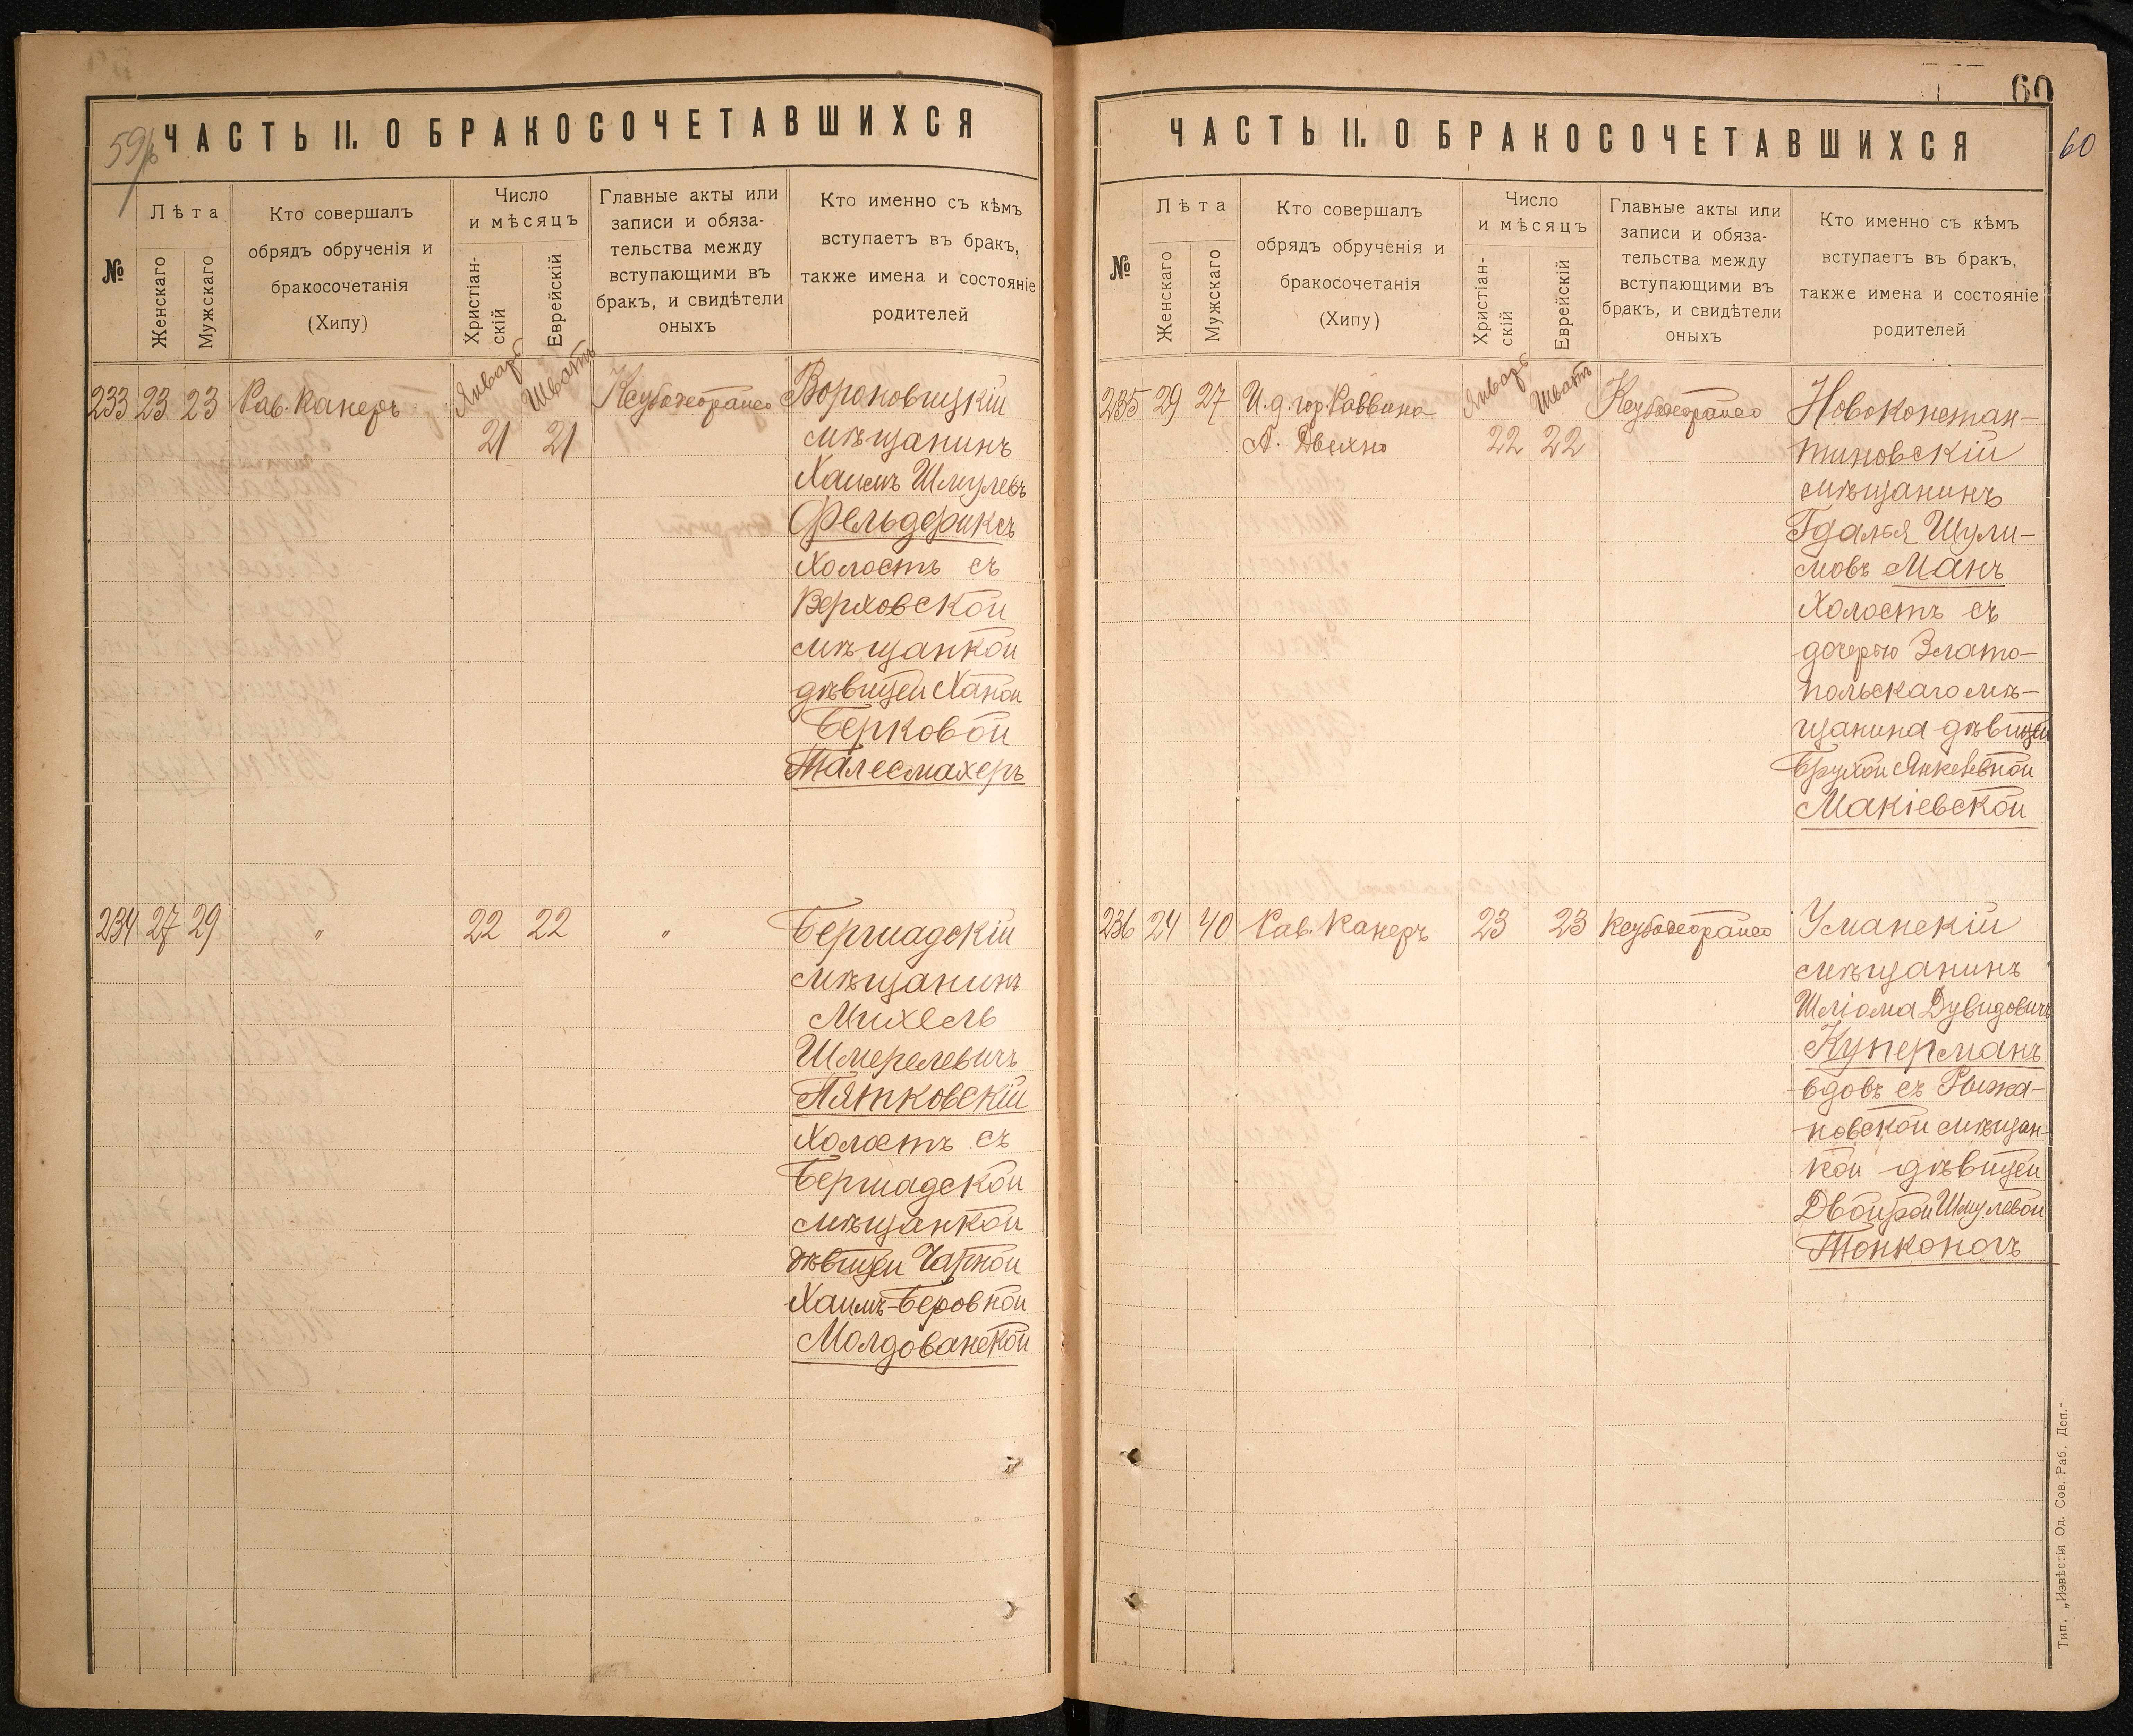 59/б
ЧАСТЬ II. О БРАКОСОЧЕТАВШИХСЯ
№
Лѣта
Женскаго
Мужскаго
Кто совершалъ
обрядъ обрученія и
бракосочетанія
(Хипу)
Число
и мѣсяцъ
Христіан-
скій
Еврейскій
Главные акты или
записи и обяза-
тельства между
вступающими въ
бракъ, и свидѣтели
оныхъ
Кто именно съ кѣмъ
вступаетъ въ бракъ,
также имена и состояніе
родителей
233 23 23 Рав. Канеръ Январь 21 Шватъ 21
Вороновицкій
мѣщанинъ
Хаимъ Шмулевъ
Фельдериксъ
холостъ съ
Верховской
мѣщанкой
дѣвицей Ханой
Берковой
Талесмахеръ
234 27 29 " 22 22 "
Бершадскій
мѣщанинъ
Михель
Шмерелевичъ
Пятковскій
холостъ съ
Бершадской
мѣщанкой
дѣвицей Чарной
Хаимъ-Беровной
Молдованской
60
60
ЧАСТЬ II. О БРАКОСОЧЕТАВШИХСЯ
№
Лѣта
Женскаго
Мужскаго
Кто совершалъ
обрядъ обрученія и
бракосочетанія
(Хипу)
Число
и мѣсяцъ
Христіан-
скій
Еврейскій
Главные акты или
записи и обяза-
тельства между
вступающими въ
бракъ, и свидѣтели
оныхъ
Кто именно съ кѣмъ
вступаетъ въ бракъ,
также имена и состояніе
родителей
235 29 27 И. д. гор. Раввина
А. Двехно
Январь 22 Шватъ 22
Новоконстан-
тиновскій
мѣщанинъ
Гдалья Шули-
мовъ Манъ
холостъ съ
дочерью Злато-
польскаго мѣ-
щанина дѣвицей
Брухой Янкелевной
Макіевской
236 24 40 Рав. Канеръ 23 23
Уманскій
мѣщанинъ
Шліома Дувидовичъ
Куперманъ
вдовъ съ Рыжа-
новской мѣщан-
кой дѣвицей
Двойрой Шмулевой
Тонконогъ
Тип. „Извѣстія Од. Сов. Раб. Деп."